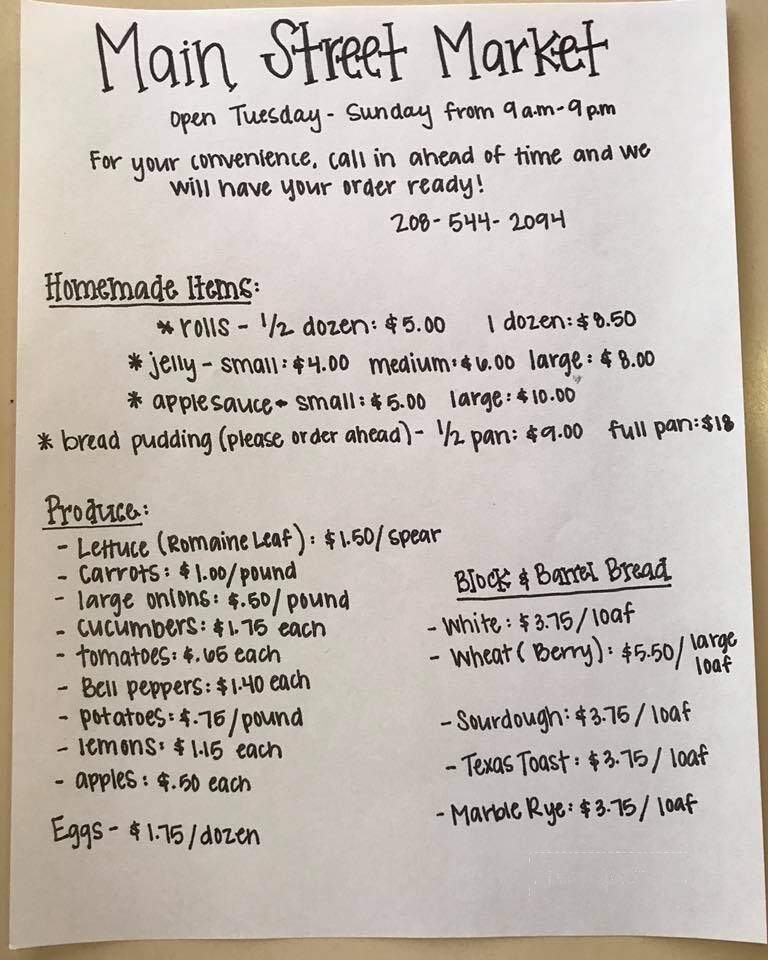 Main Street Market
Open Tuesday - Sunday from 9 a.m - 9 p.m
For your convenience, call in ahead of time and we
will have your order ready!
208-544-2094
Homemade Items:
* rolls - 1/2 dozen: $5.00 1 dozen: $8.50
* jelly - small: $4.00 medium: $6.00 large: $8.00
* applesauce - small: $5.00 large: $10.00
* bread pudding (please order ahead) - 1/2 pan: $9.00 full pan: $18
Produce:
- Lettuce (Romaine Leaf): $1.50/spear
- Carrots: $1.00/pound
- large onions: $.50/pound
- cucumbers: $1.75 each
- tomatoes: $.65 each
- Bell peppers: $1.40 each
- potatoes: $.75/pound
- lemons: $1.15 each
- apples: $.50 each
Eggs - $1.75/dozen
Block & Barrel Bread
- White: $3.75/loaf
- Wheat (Berry): $5.50/large
loaf
- Sourdough: $3.75/loaf
- Texas Toast: $3.75/loaf
- Marble Rye: $3.75/loaf